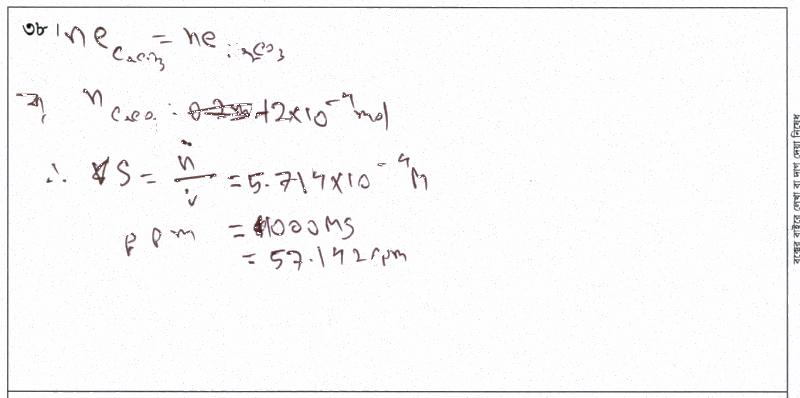 ৩৮। ne CaCO3 = ne Na2CO3
বা, n CaCO3 = 2×10^-4 mol
∴ S = n/V = 5.714×10^-4 M
ppm = 1000MS
= 57.142 ppm
বক্সের বাইরে লেখা বা দাগ দেয়া নিষেধ